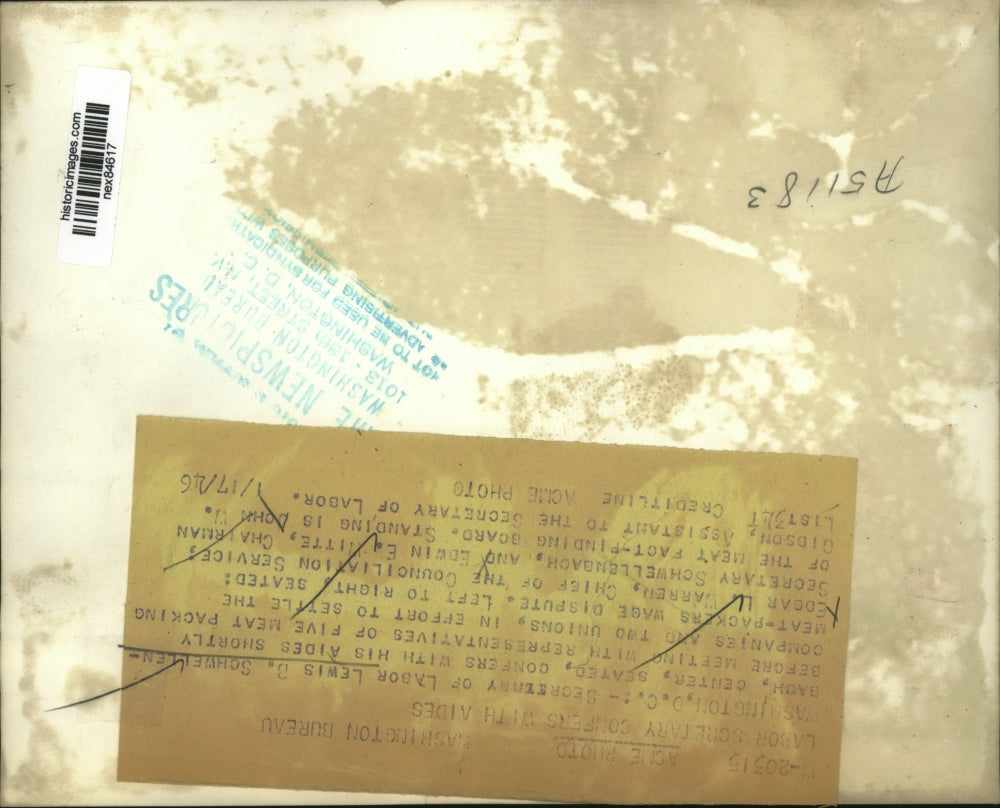 historicimages.com
nex84617
A51183
NEWSPICTURES
WASHINGTON BUREAU
1013 - 13th STREET, N.W.
WASHINGTON, D. C.
NOT TO BE USED FOR SYNDICATE
OR ADVERTISING PURPOSES
-20315 ACME PHOTO WASHINGTON BUREAU
LABOR SCRETARY CONFERS WITH AIDES
WASHINGTON,D.C.:- SECRETARY OF LABOR LEWIS B. SCHWELLEN-
BACH, CENTER, SEATED, CONFERS WITH HIS AIDES SHORTLY
BEFORE MEETING WITH REPRESENTATIVES OF FIVE MEAT PACKING
COMPANIES AND TWO UNIONS, IN EFFORT TO SETTLE THE
MEAT-PACKERS WAGE DISPUTE. LEFT TO RIGHT, SEATED:
EDGAR L. WARREN, CHIEF OF THE COUNCILIATION SERVICE;
SECRETARY SCHWELLENBACH, AND EDWIN E. WITTE, CHAIRMAN
OF THE MEAT FACT-FINDING BOARD. STANDING IS JOHN W.
GIDSON, ASSISTANT TO THE SECRETARY OF LABOR.
LIST34T CREDITLINE ACME PHOTO 1/17/46